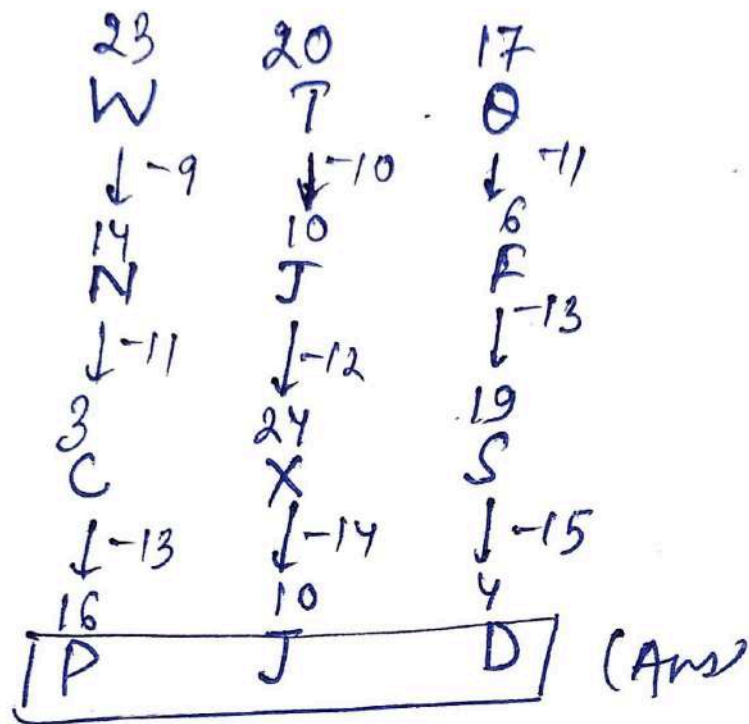 23 20 17
W T Q
↓-9 ↓-10 ↓-11
14 10 6
N J F
↓-11 ↓-12 ↓-13
3 24 19
C X S
↓-13 ↓-14 ↓-15
16 10 4
P J D (Ans